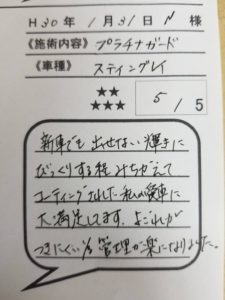 H30年1月31日 N 様
《施術内容》 プラチナガード
《車種》 スティングレイ
★★
★★★
5 / 5
新車でも出せない輝きに
びっくりする程みちがえて
コーティングされた私の愛車に
大満足してます。よごれが
つきにくい分管理が楽になりました。